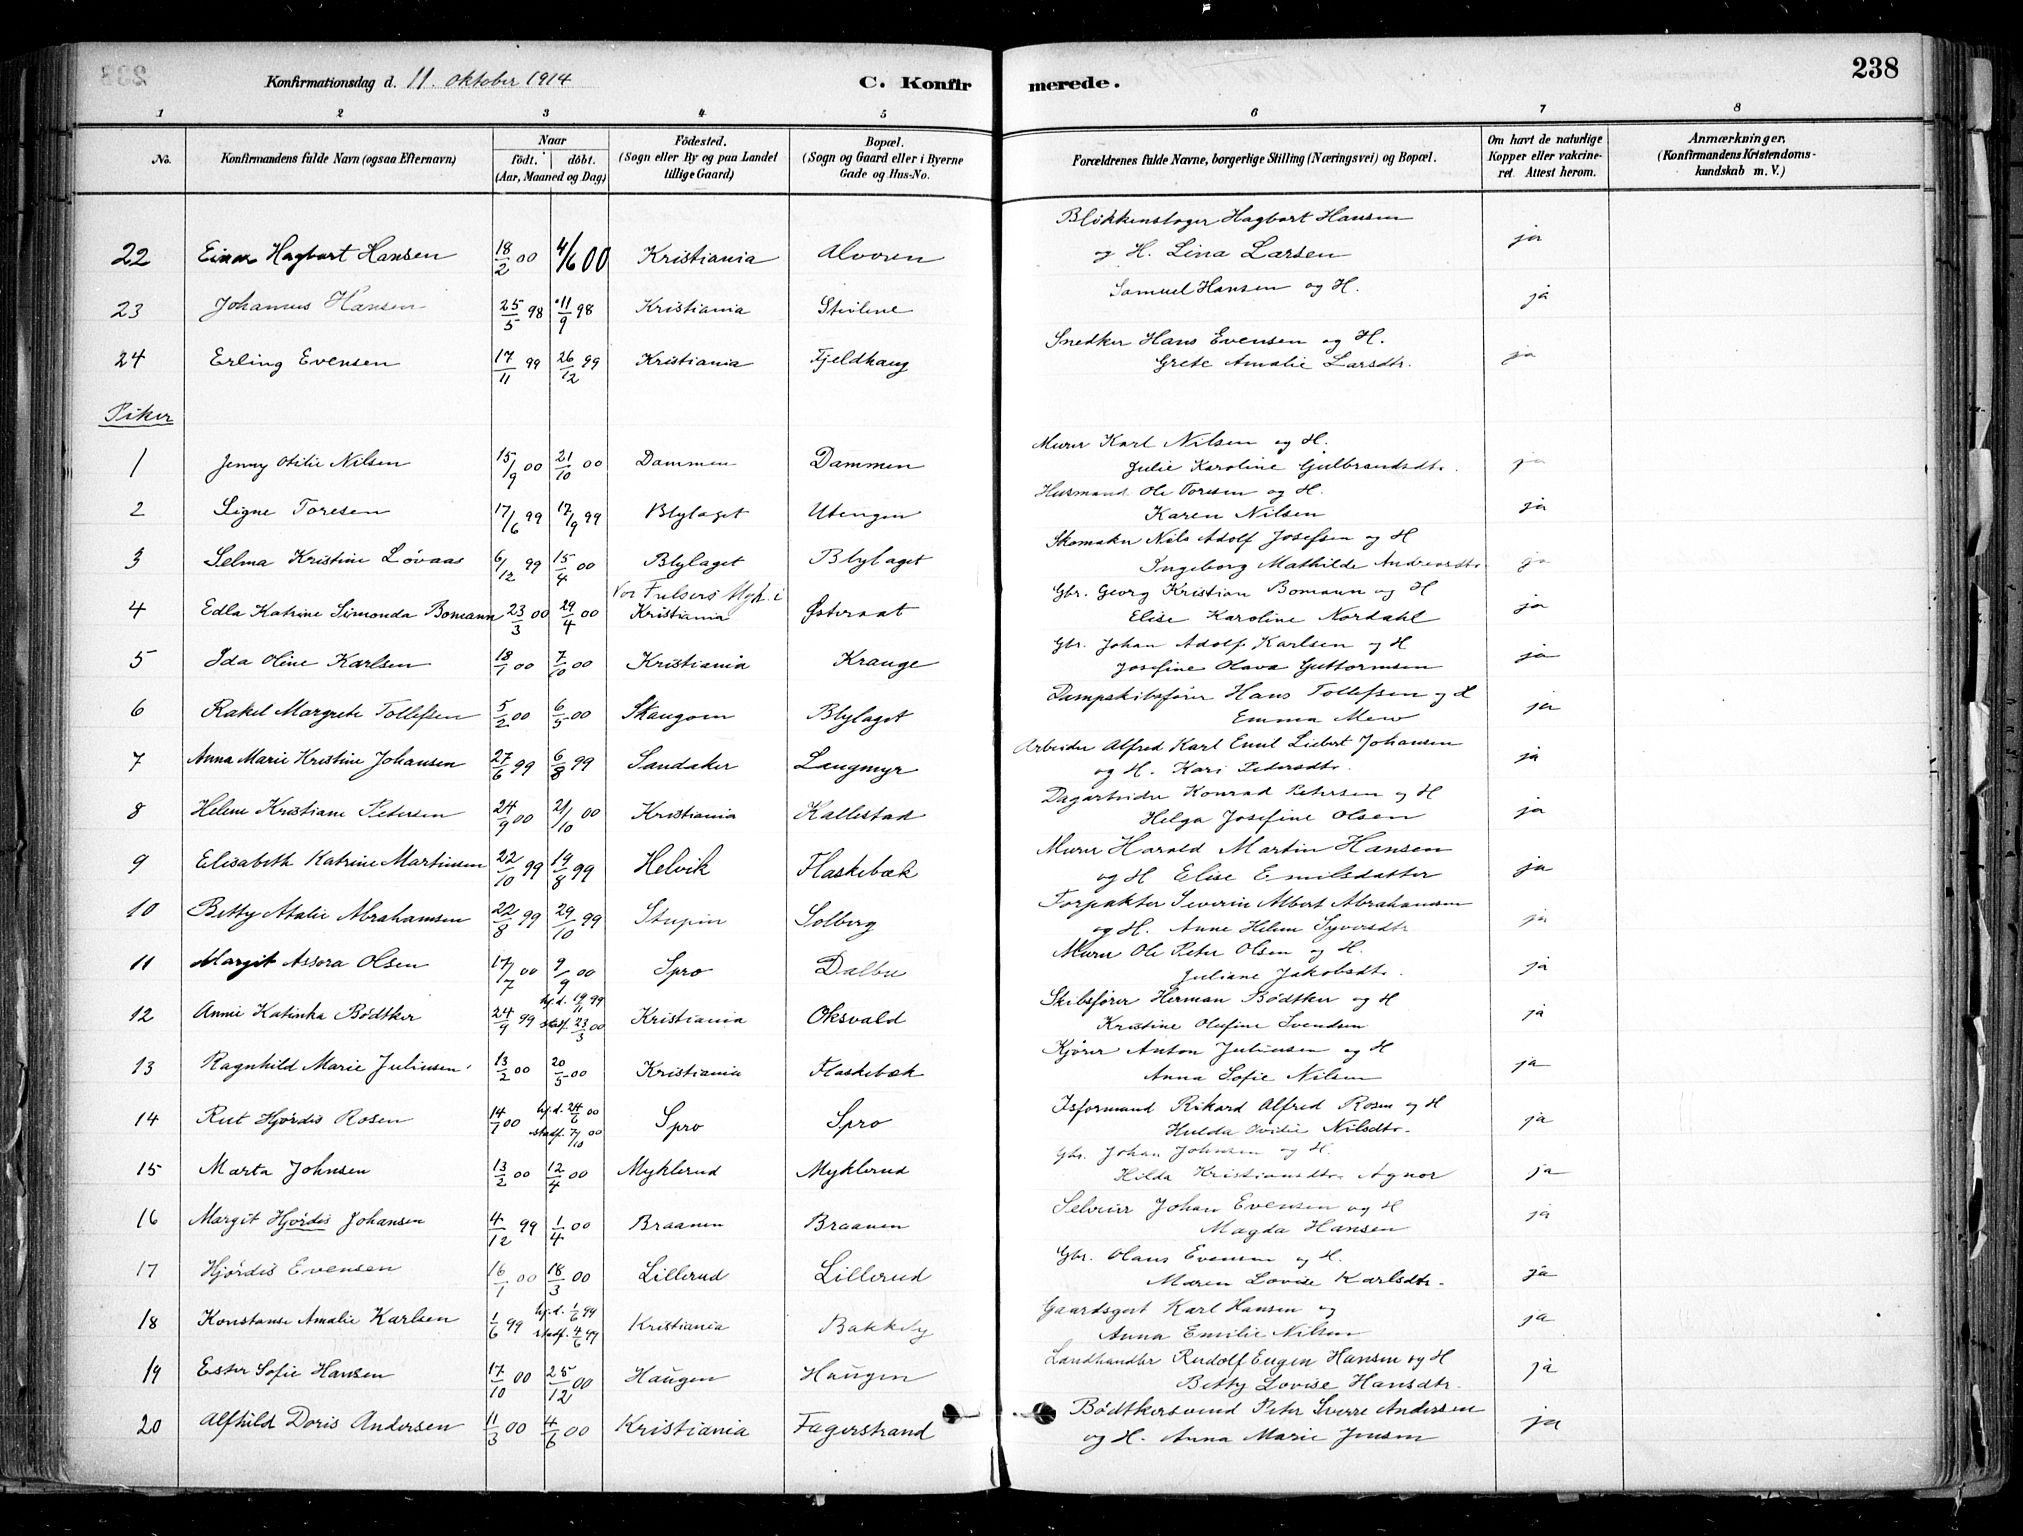 238
Konfirmationsdag d. 11. oktober 1914
C. Konfirmerede.
1 2 3 4 5 6 7 8
No.
Konfirmandens fulde Navn (ogsaa Efternavn)
Naar
født. døbt.
(Aar, Maaned og Dag)
Fødested.
(Sogn eller By og paa Landet
tillige Gaard)
Bopæl.
(Sogn og Gaard eller i Byerne
Gade og Hus-No.
Forældrenes fulde Navne, borgerlige Stilling (Næringsvei) og Bopæl.
Om havt de naturlige
Kopper eller vakcine-
ret. Attest herom.
Anmærkninger,
(Konfirmandens Kristendoms-
kundskab m. V.)
Blikkenslager Hagbart Hansen
22 Einar Hagbart Hansen 18/2 00 4/6 00 Kristiania Alvoren og H. Lina Larsen ja
Samuel Hansen og H.
23 Johannes Hansen 25/5 98 11/9 98 Kristiania Stilene ja
Snedker Hans Evensen og H.
24 Erling Evensen 17/11 99 26/12 99 Kristiania Fjeldhaug Grete Amalie Larsdtr. ja
Piker
Murer Karl Nilsen og H.
1 Jenny Otilie Nilsen 15/9 00 21/10 00 Dammen Dammen Julie Karoline Gulbrandsdtr. ja
Husmand Ole Toresen og H.
2 Signe Toresen 17/6 99 17/9 99 Blylaget Utengen Karen Nilsen ja
Skomaker Nils Adolf Josefsen og H
3 Selma Kristine Løvaas 6/12 99 15/4 00 Blylaget Blylaget Ingeborg Mathilde Andreasdtr. ja
Vor Frelsers Mgh. i
Gbr. Georg Kristian Bomann og H
4 Edla Katrine Simonda Bomann 23/3 00 29/4 00 Kristiania Østeraat Elise Karoline Nordahl ja
Gbr. Johan Adolf Karlsen og H
5 Ida Oline Karlsen 18/7 00 7/10 00 Kristiania Krange Josefine Olava Guttormsen ja
Dampskibsfører Hans Tollefsen og H
6 Rakel Margrete Tollefsen 5/2 00 6/5 00 Skaugom Blylaget Emma ja
Arbeider Alfred Karl Emil Liebert Johansen
7 Anna Marie Kristine Johansen 27/6 99 6/8 99 Sandaker Langmyr og H. Kari Pedersdtr. ja
Dagarbeider Konrad Petersen og H
8 Helene Kristiane Petersen 24/9 00 21/10 00 Kristiania Kallestad Helga Josefine Olsen ja
Murer Harald Martin Hansen
9 Elisabeth Katrine Martinsen 22/10 99 19/8 99 Helvik Flaskebæk og H Elise Emilsdatter ja
Forpakter Severin Albert Abrahamsen
10 Betty Atalie Abrahamsen 22/8 99 29/10 99 Stupin Solberg og H. Anne Helene Syversdtr ja
Murer Ole Peter Olsen og H.
11 Margit Assora Olsen 17/7 00 9/9 00 Spro Dalbu Juliane Jakobsdtr. ja
Skibsfører Herman Bødtker og H
12 Annie Katinka Bødtker 24/9 99 hj.d. 19/11 99 stadf. 23/3 00 Kristiania Oksvald Kristine Olufine Svendsen ja
Kjører Anton Juliussen og H
13 Ragnhild Marie Juliussen 13/2 00 20/5 00 Kristiania Flaskebæk Anna Sofie Nilsen ja
Isformand Rikard Alfred Rosen og H
14 Rut Hjørdis Rosen 14/7 00 hj.d. 24/6 00 stadf. 7/10 00 Spro Spro Hulda Otilie Nilsdtr. ja
Gbr. Johan Johnsen og H.
15 Marta Johnsen 13/2 00 12/4 00 Myklerud Myklerud Hilda Kristiansdtr. Agnor ja
Selveier Johan Evensen og H
16 Margit Hjørdis Johansen 4/12 99 1/4 00 Braanen Braanen Magda Hansen ja
Gbr. Olaus Evensen og H.
17 Hjørdis Evensen 16/1 00 18/3 00 Lillerud Lillerud Maren Lovise Karlsdtr. ja
Gaardsgut Karl Hansen og
18 Konstanse Amalie Karlsen 1/6 99 hj.d. 1/6 99 stadf. 4/6 99 Kristiania Bakkely Anna Emilie Nilsen ja
Landhandler Rudolf Eugen Hansen og H
19 Ester Sofie Hansen 17/10 00 25/12 00 Haugen Haugen Betty Lovise Hansdtr. ja
Bødtkersvend Peter Sverre Andersen
20 Alfhild Doris Andersen 11/3 00 4/6 00 Kristiania Fagerstrand og H. Anna Marie Jensen ja